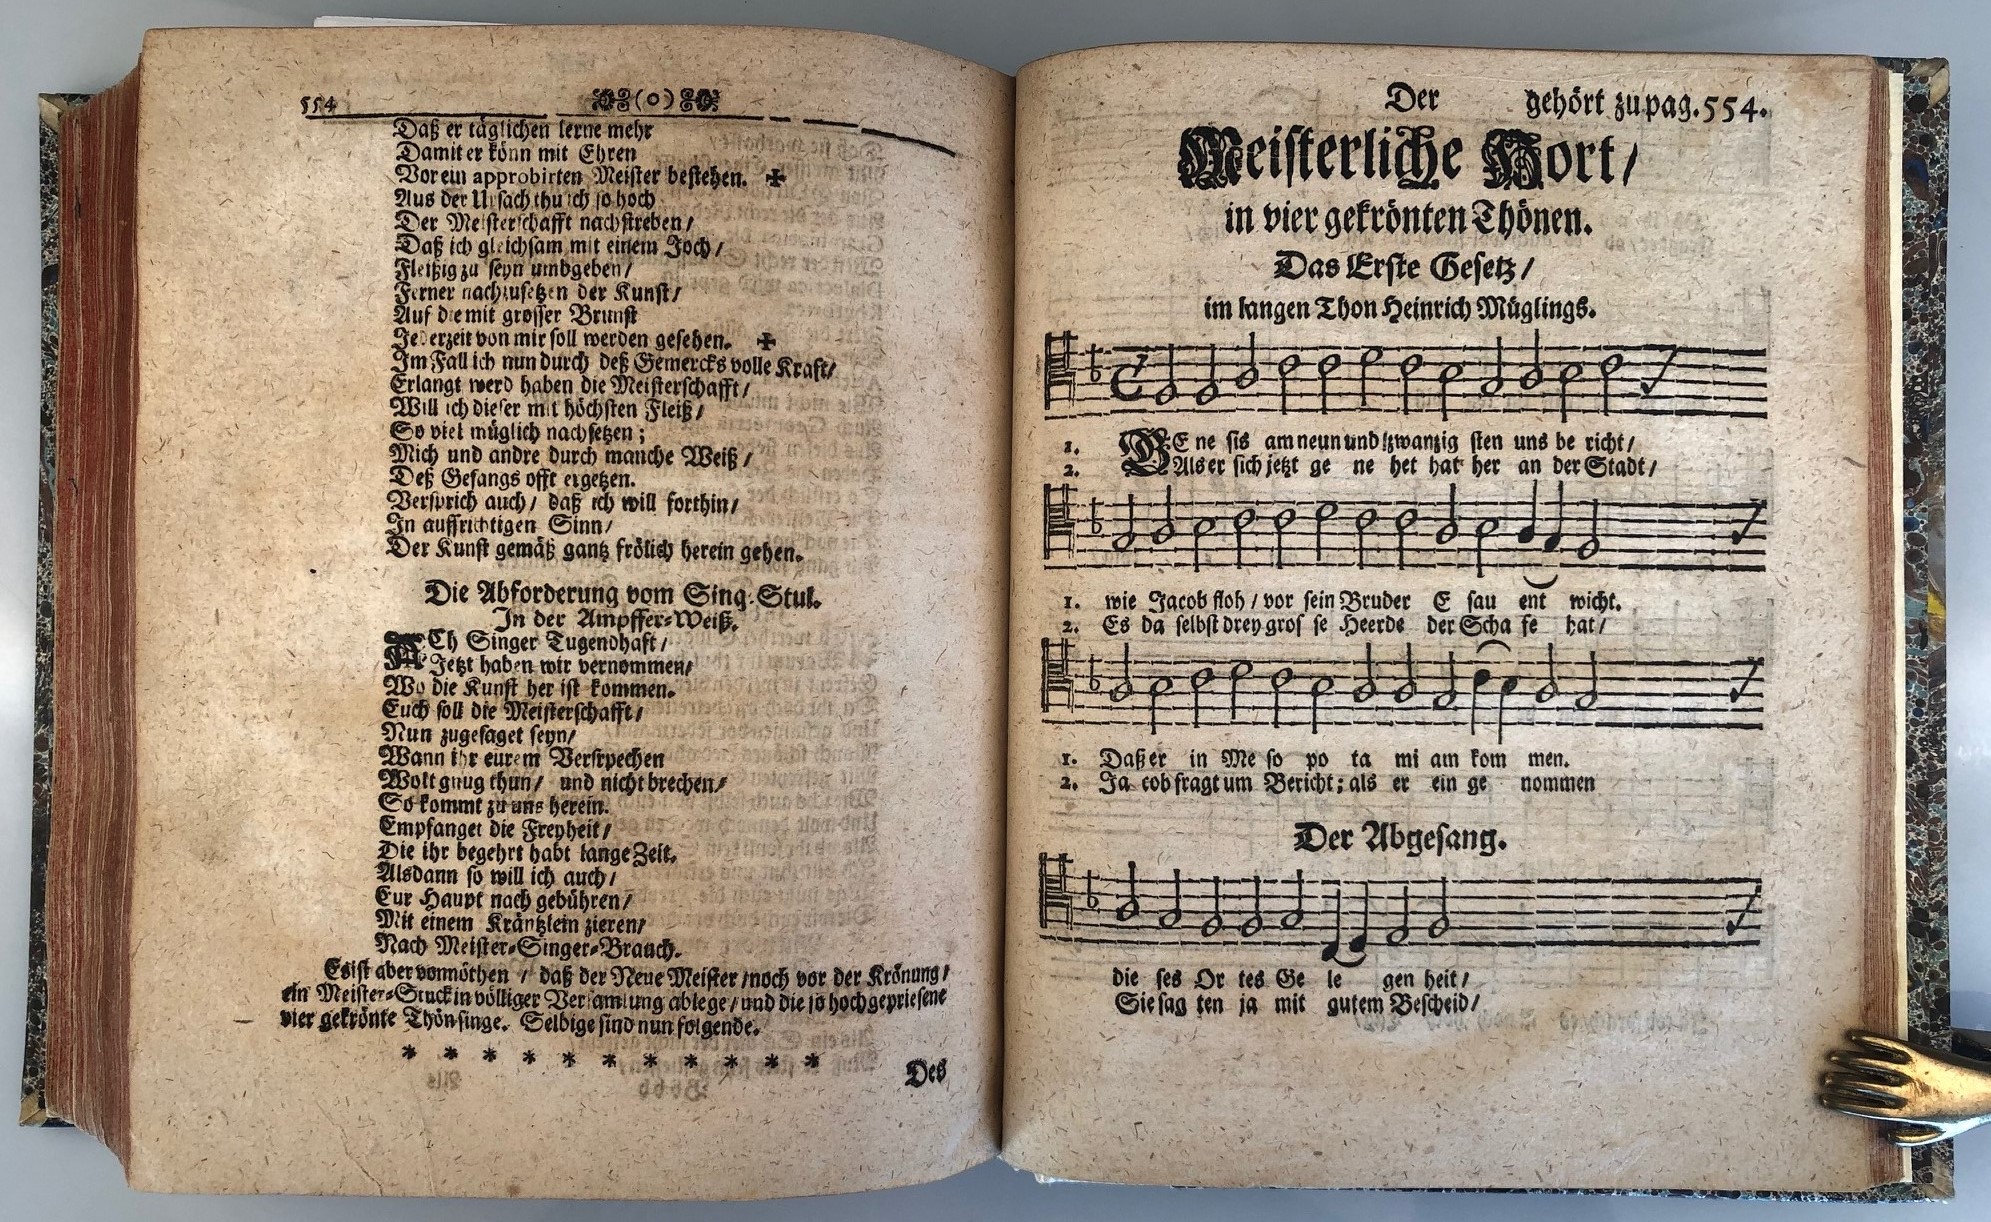 554 (o)
Daß er täglichen lerne mehr
Damit er könn mit Ehren
Vor ein approbirten Meister bestehen. ✠
Aus der Ursach thu ich so hoch
Der Meisterschafft nachstreben/
Daß ich gleichsam mit einem Joch/
Fleißig zu seyn umbgeben/
Ferner nachzusetzen der Kunst/
Auf die mit grosser Brunst
Jederzeit von mir soll werden gesehen. ✠
Im Fall ich nun durch deß Gemercks volle Kraft/
Erlangt werd haben die Meisterschafft/
Will ich dieser mit höchsten Fleiß/
So viel müglich nachsetzen;
Mich und andre durch manche Weiß/
Deß Gesangs offt ergetzen.
Versprich auch/ daß ich will forthin/
In auffrichtigen Sinn/
Der Kunst gemäß gantz frölich herein gehen.
Die Abforderung vom Sing-Stul.
In der Ampffer-Weiß.
ACh Singer Tugendhaft/
Jetzt haben wir vernommen/
Wo die Kunst her ist kommen.
Euch soll die Meisterschafft/
Nun zugesaget seyn/
Wann ihr eurem Versrpechen
Wolt gnug thun/ und nicht brechen/
So kommt zu uns herein.
Empfanget die Freyheit/
Die ihr begehrt habt lange Zeit.
Alsdann so will ich auch/
Eur Haupt nach gebühren/
Mit einem Kräntzlein zieren/
Nach Meister-Singer-Brauch.
Es ist aber vonnöthen / daß der Neue Meister/noch vor der Krönung/
ein Meister-Stuck in völliger Versamlung ablege/und die so hochgepriesene
vier gekrönte Thön singe. Selbige sind nun folgende.
* * * * * * * * * * *
Des
Der gehört zu pag. 554.
Meisterliche Hort/
in vier gekrönten Thönen.
Das Erste Gesetz/
im langen Thon Heinrich Müglings.
1. GE ne sis am neun und zwanzig sten uns be richt/
2. Als er sich jetzt ge ne het hat her an der Stadt/
1. wie Jacob floh/ vor sein Bruder E sau ent wicht.
2. Es da selbst drey gros se Heerde der Scha fe hat/
1. Daß er in Me so po ta mi am kom men.
2. Ja cob fragt um Bericht; als er ein ge nommen
Der Abgesang.
die ses Or tes Ge le gen heit/
Sie sag ten ja mit gutem Bescheid/